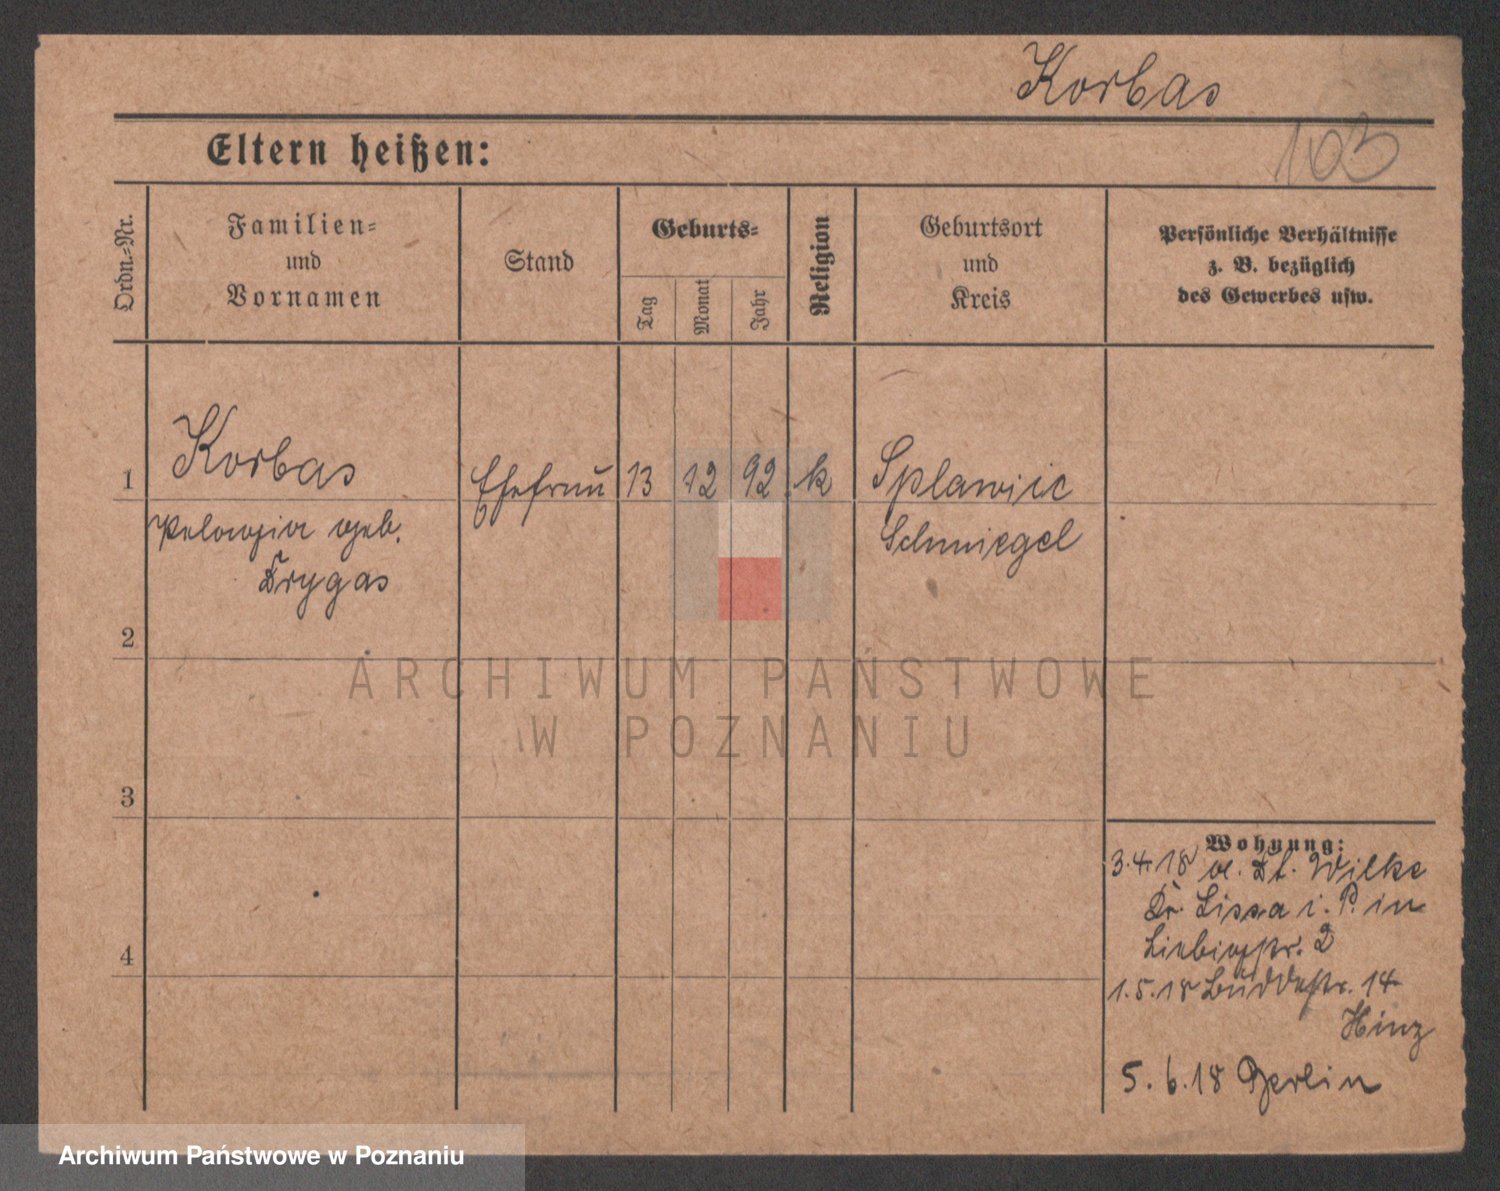 Korbas
103
Eltern heißen:
Ordn.-Nr.
Familien-
und
Vornamen
Stand
Geburts-
Tag
Monat
Jahr
Religion
Geburtsort
und
Kreis
Persönliche Verhältnisse
z. B. bezüglich
des Gewerbes usw.
1
Korbas
Ehefrau
13
12
92
k
Splawiic
Pelagia geb.
Schmiegel
Drygas
2
ARCHIWUM PAŃSTWOWE
W POZNANIU
3
Wohnung:
3.4.18 Wilke
Lissa i. P. in
Liebigstr. 2
4
1.5.18 Buddestr. 14
Hinz
5.6.18 Berlin
Archiwum Państwowe w Poznaniu